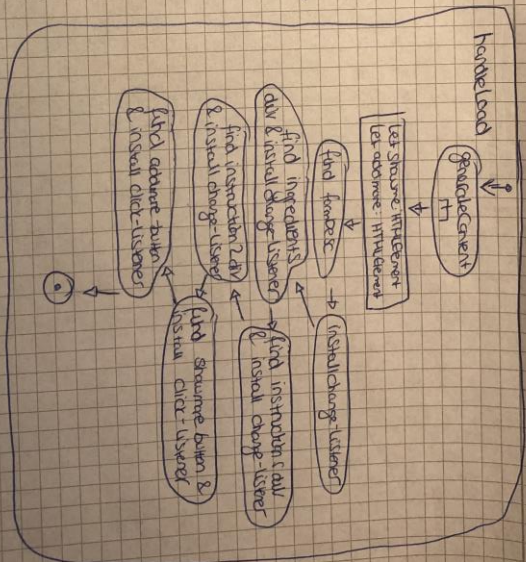 handleLoad
generateContent
let showme: HTMLElement
let addmore: HTMLElement
find formDesc
install change-listener
find ingredients
div & install change listener
find instruction1 div
& install change-listener
find instruction2 div
& install change-listener
find showme button &
install click-listener
find addmore-button
& install click-listener